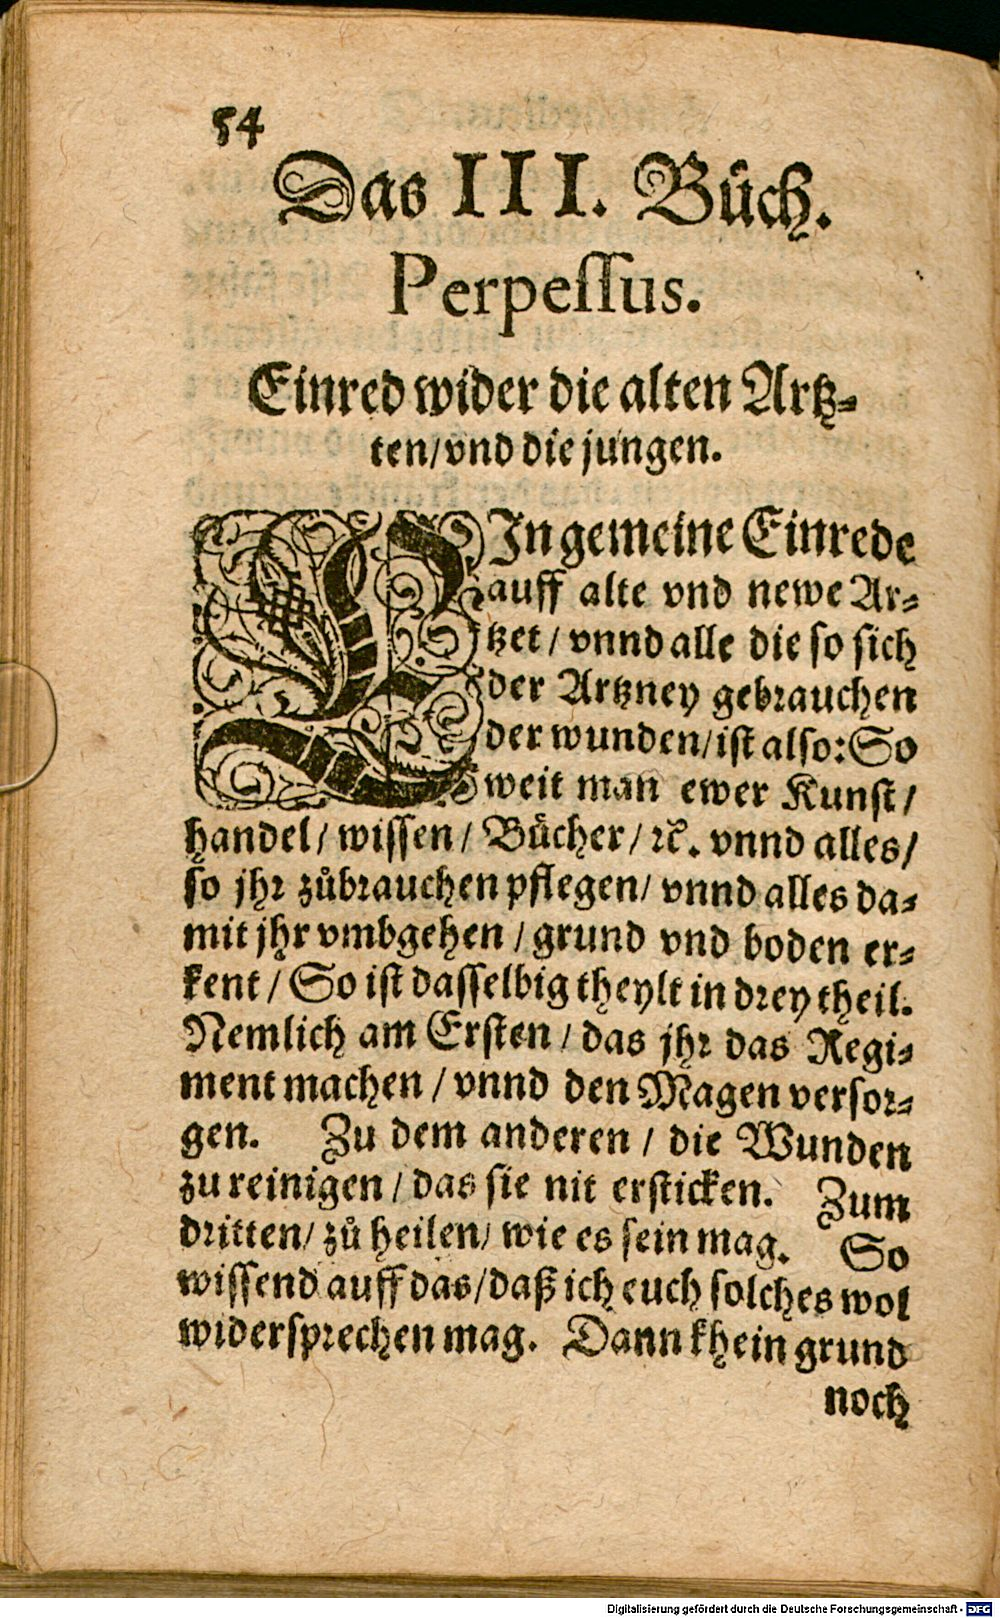 54
Das III. Bůch.
Perpessus.
Einred wider die alten Artz-
ten/vnd die jungen.
EIn gemeine Einrede
auff alte vnd newe Ar-
tzet/vnnd alle die so sich
der Artzney gebrauchen
der wunden/ist also: So
weit man ewer Kunst/
handel/wissen/Bücher/ꝛc. vnnd alles/
so jhr zůbrauchen pflegen/vnnd alles da-
mit jhr vmbgehen/grund vnd boden er-
kent/So ist dasselbig theylt in drey theil.
Nemlich am Ersten/das jhr das Regi-
ment machen/vnnd den Magen versor-
gen. Zu dem anderen/die Wunden
zu reinigen/das sie nit ersticken. Zum
dritten/zů heilen/wie es sein mag. So
wissend auff das/daß ich euch solches wol
widersprechen mag. Dann khein grund
noch
Digitalisierung gefördert durch die Deutsche Forschungsgemeinschaft - DFG